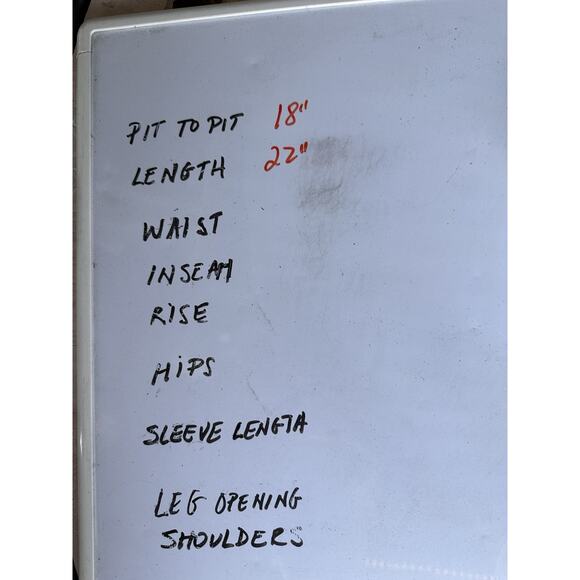 PIT TO PIT 18"
LENGTH 22"
WAIST
INSEAM
RISE
HIPS
SLEEVE LENGTH
LEG OPENING
SHOULDERS